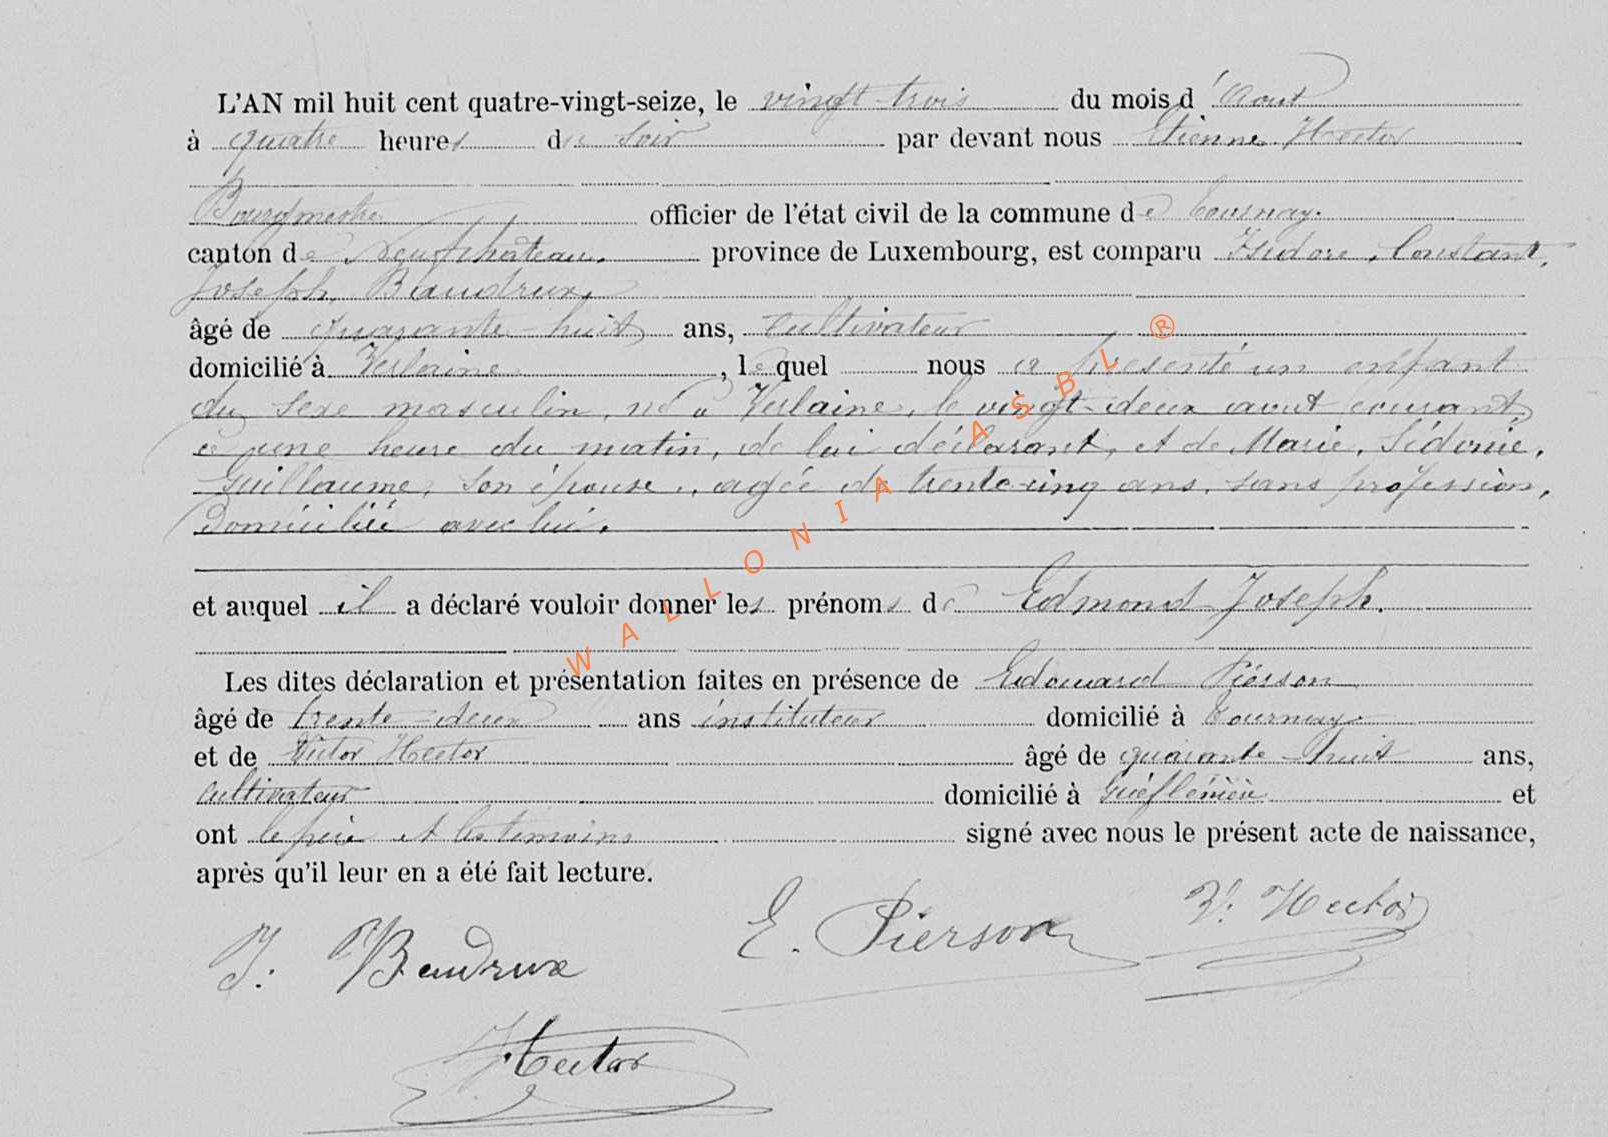 L'AN mil huit cent quatre-vingt-seize, le vingt-trois du mois d'Aout
à quatre heures du soir par devant nous Etienne Hector
Bourgmestre officier de l'état civil de la commune de Tournay.
canton de Neufchâteau. province de Luxembourg, est comparu Isidore, Constant,
Joseph, Baudrux,
âgé de quarante-huit ans, cultivateur
domicilié à Verlaine, lequel nous a présenté un enfant
du sexe masculin, né à Verlaine, le vingt-deux aout courant,
à une heure du matin, de lui déclarant, et de Marie, Sidonie,
Guillaume, son épouse, agée de trente-cinq ans, sans profession,
domiciliée avec lui.
et auquel il a déclaré vouloir donner les prénoms de Edmond Joseph.
Les dites déclaration et présentation faites en présence de Edouard Piérson
âgé de trente-deux ans instituteur domicilié à Tournay
et de Victor Hector âgé de quarante-huit ans,
cultivateur domicilié à et
ont le père et les témoins signé avec nous le présent acte de naissance,
après qu'il leur en a été fait lecture.
J. Baudrux E. Pierson V. Hector
Hector
WALLONIA ASBL ®